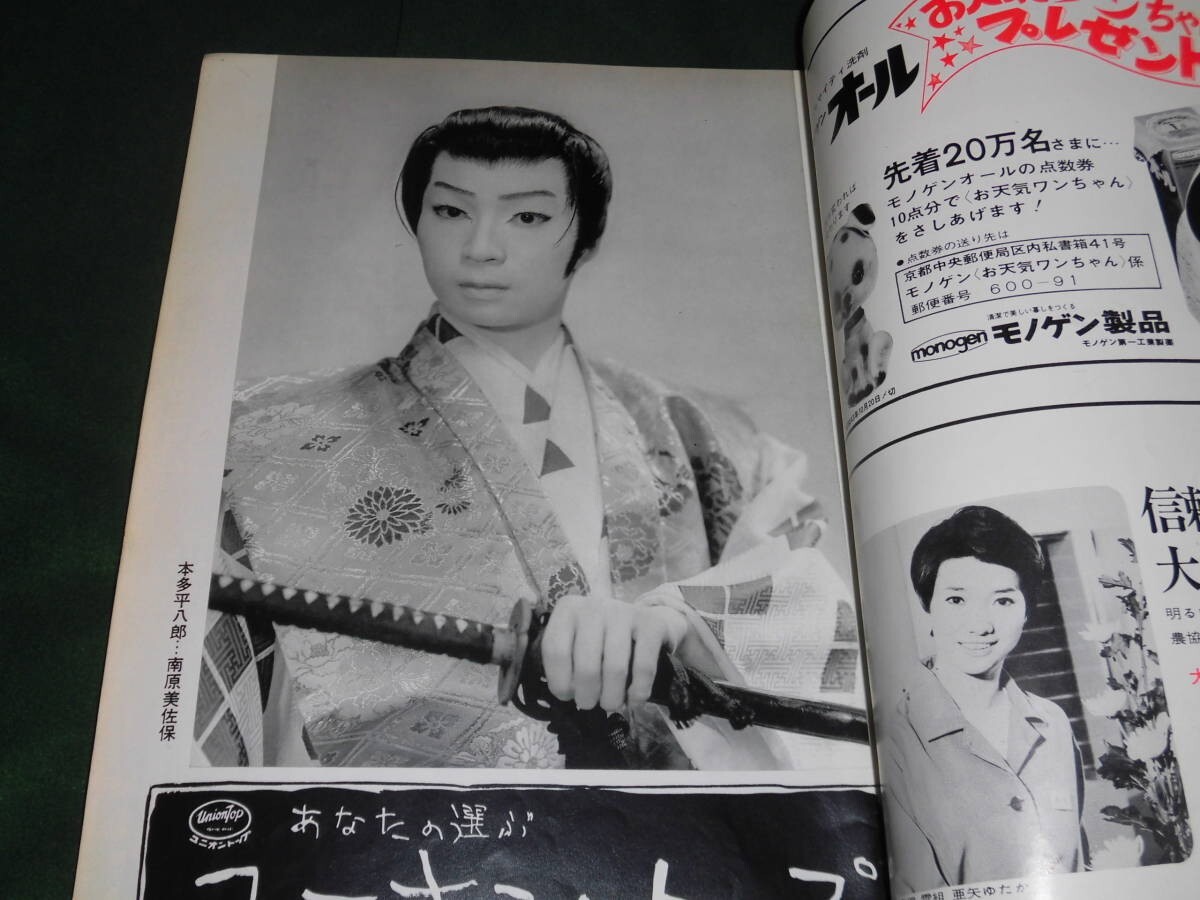 本多平八郎…南原美佐保
UnionTop
ユニオントップ
あなたの選ぶ
プレゼント
オール
先着20万名さまに…
モノゲンオールの点数券
10点分で〈お天気ワンちゃん〉
をさしあげます!
●点数券の送り先は
京都中央郵便局区内私書箱41号
モノゲン〈お天気ワンちゃん〉係
郵便番号 600-91
清潔で美しい暮しをつくる
monogen モノゲン製品
モノゲン第一工業製薬
年10月20日〆切
信頼
大
明る
農協
雪組 亜矢ゆたか